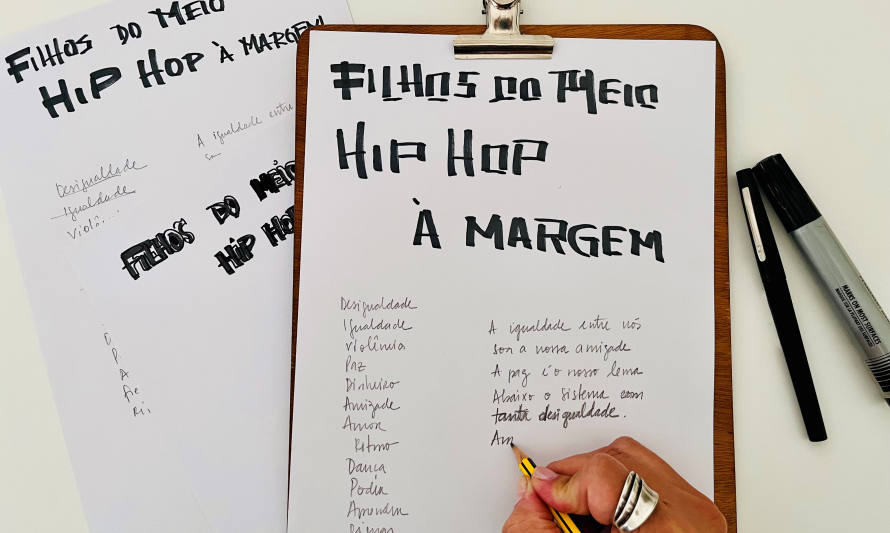 FILHOS DO MEIO
HIP HOP À MARGEM!
Desigualdade
Igualdade
Violên...
A igualdade entre
FILHOS DO MEIO
HIP HO
D
P
A
Ri
FILHOS DO MEIO
HIP HOP
À MARGEM
Desigualdade
Igualdade
Violência
Paz
Dinheiro
Amizade
Amor
Ritmo
Dança
Podia
Aprender
A igualdade entre nós
som a nossa amizade
A paz é o nosso lema
Abaixo o sistema com
tanta desigualdade.
Am
MARKS ON MOST SURFACES